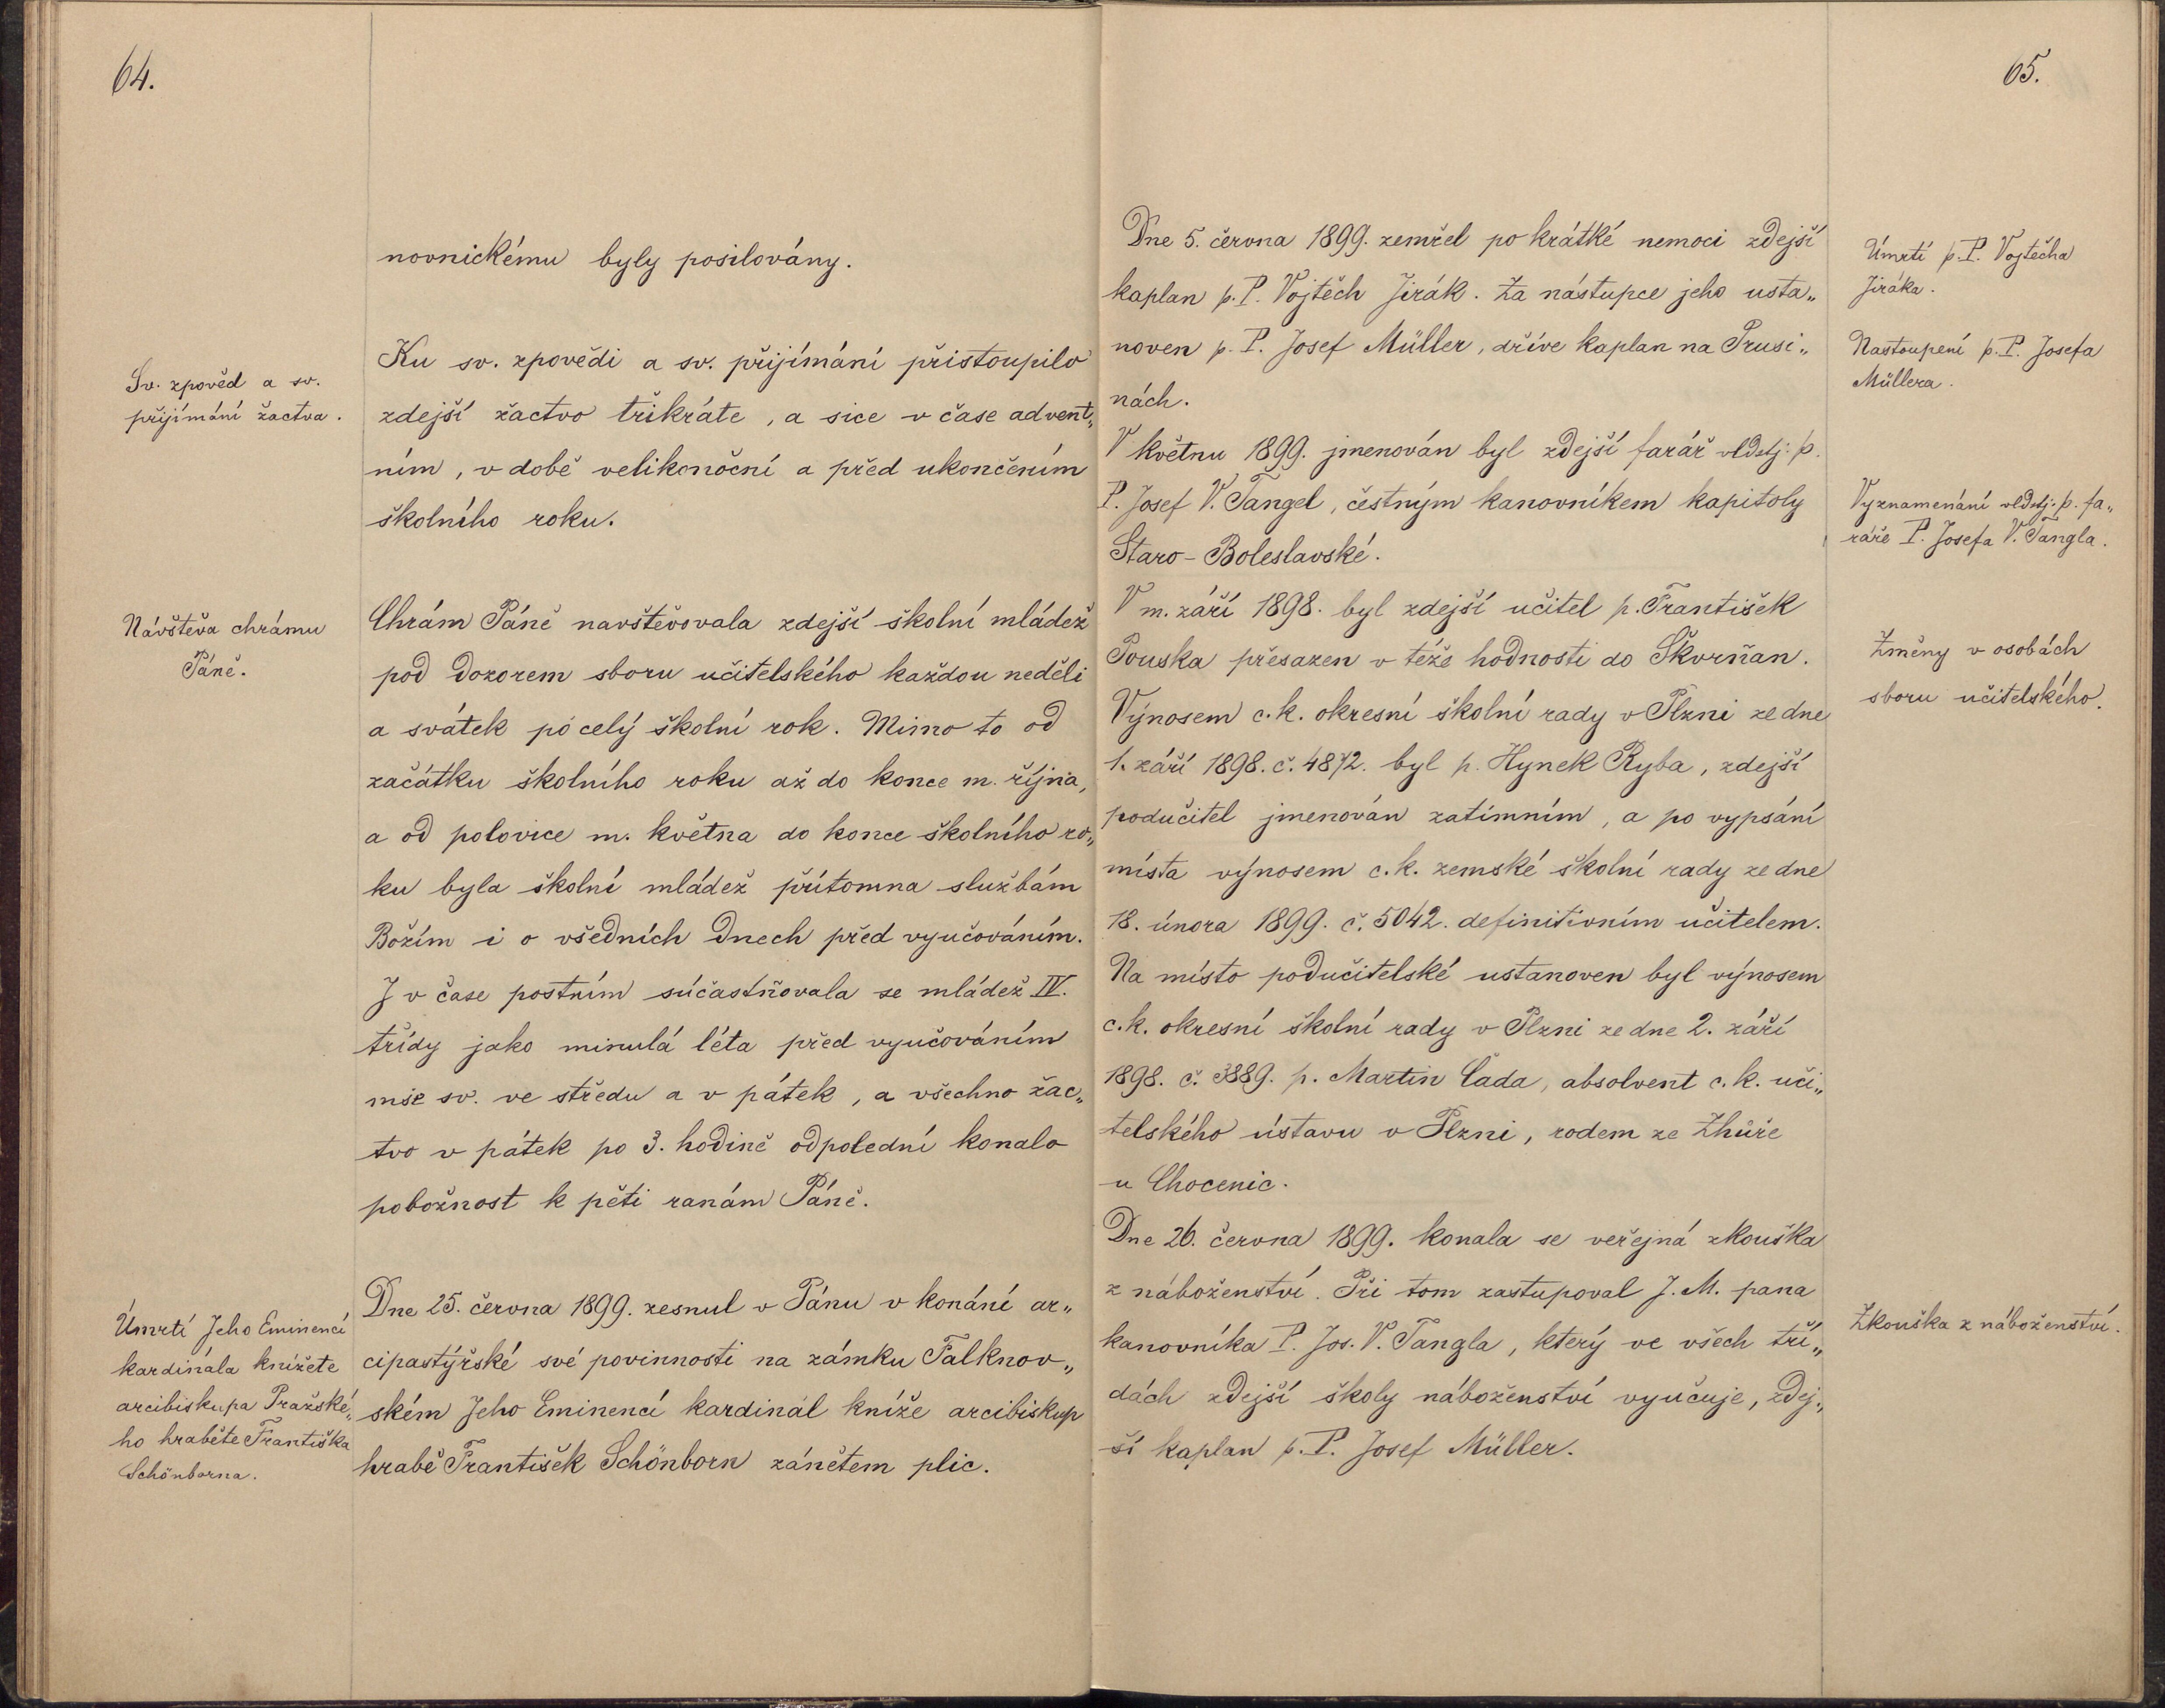 64.
novnickému byly posilovány.
Sv. zpověd a sv.
přijímání žactva.
Ku sv. zpovědi a sv. přijímání přistoupilo
zdejší žactvo třikráte, a sice v čase advent„
ním, v době velikonoční a před ukončením
školního roku.
Návštěva chrámu
Páně.
Chrám Páně navštěvovala zdejší školní mládež
pod dozorem sboru učitelského každou neděli
a svátek po celý školní rok. Mimo to od
začátku školního roku až do konce m. října,
a od polovice m. května do konce školního ro„
ku byla školní mládež přítomna službám
Božím i o všedních dnech před vyučováním.
I v čase postním súčastňovala se mládež IV.
třídy jako minulá léta před vyučováním
mše sv. ve středu a v pátek, a všechno žac„
tvo v pátek po 3. hodině odpolední konalo
pobožnost k pěti ranám Páně.
Úmrtí Jeho Eminencí
kardinála knížete
arcibiskupa Pražské„
ho hraběte Františka
Schönborna.
Dne 25. června 1899. zesnul v Pánu v konání ar„
cipastýřské své povinnosti na zámku Falknov„
ském Jeho Eminencí kardinál kníže arcibiskup
hrabě František Schönborn zánětem plic.
65.
Dne 5. června 1899. zemřel po krátké nemoci zdejší
kaplan p. P. Vojtěch Jirák. Za nástupce jeho usta„
noven p. P. Josef Müller, dříve kaplan na Prusi„
nách.
Úmrtí p. P. Vojtěcha
Jiráka.
Nastoupení p. P. Josefa
Müllera.
V květnu 1899. jmenován byl zdejší farář vldstj. p.
P. Josef V. Tangel, čestným kanovníkem kapitoly
Staro-Boleslavské.
Vyznamenání vldstj. p. fa„
ráře P. Josefa V. Tangla.
V m. září 1898. byl zdejší učitel p. František
Pouska přesazen v téže hodnosti do Škvrňan.
Výnosem c. k. okresní školní rady v Plzni ze dne
1. září 1898. č. 4872. byl p. Hynek Ryba, zdejší
podučitel jmenován zatímním, a po vypsání
místa výnosem c. k. zemské školní rady ze dne
18. února 1899. č. 5042. definitivním učitelem.
Na místo podučitelské ustanoven byl výnosem
c. k. okresní školní rady v Plzni ze dne 2. září
1898. č. 3889. p. Martin Čada, absolvent c. k. uči„
telského ústavu v Plzni, rodem ze Zhůře
u Chocenic.
Změny v osobách
sboru učitelského.
Dne 26. června 1899. konala se veřejná zkouška
z náboženství. Při tom zastupoval J. M. pana
kanovníka P. Jos. V. Tangla, který ve všech tří„
dách zdejší školy náboženství vyučuje, zdej„
ší kaplan p. P. Josef Müller.
Zkouška z náboženství.